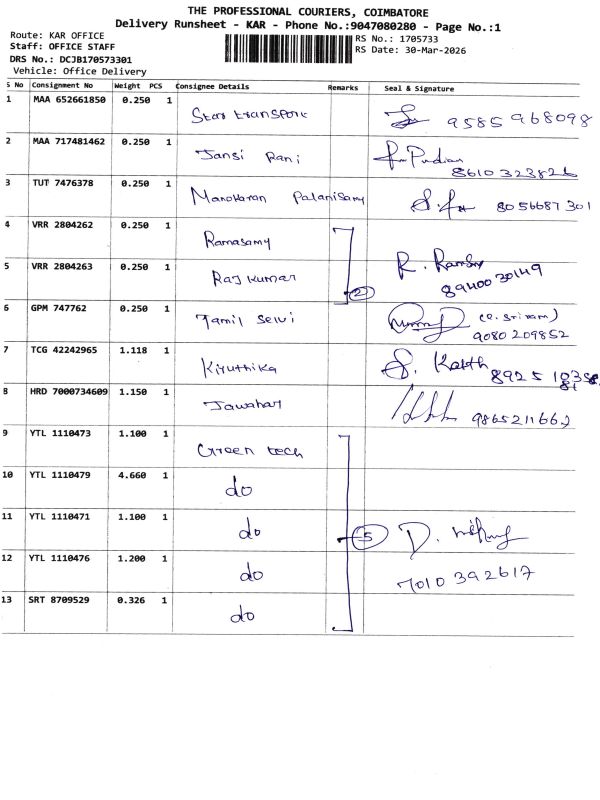 THE PROFESSIONAL COURIERS, COIMBATORE
Delivery Runsheet - KAR - Phone No.:9047080280 - Page No.:1
Route: KAR OFFICE
Staff: OFFICE STAFF
DRS No.: DCJB170573301
Vehicle: Office Delivery
RS No.: 1705733
RS Date: 30-Mar-2026
S No Consignment No Weight PCS Consignee Details Remarks Seal & Signature
1 MAA 652661850 0.250 1 Star transport 9585 968098
2 MAA 717481462 0.250 1 Jansi Rani Pandian
8610 323826
3 TUT 7476378 0.250 1 Manokaran Palanisamy 8056687301
4 VRR 2804262 0.250 1 Ramasamy
5 VRR 2804263 0.250 1 Raj kumar 2 R.
8940030149
6 GPM 747762 0.250 1 Tamil Selvi (C. Sriram)
9080 209852
7 TCG 42242965 1.118 1 Kiruthika S. Karth
8925 1035
81
8 HRD 7000734609 1.150 1 Jawahar 9865211662
9 YTL 1110473 1.100 1 Green tech
10 YTL 1110479 4.660 1 do
11 YTL 1110471 1.100 1 do 5 D.
12 YTL 1110476 1.200 1 do 7010 392617
13 SRT 8709529 0.326 1 do